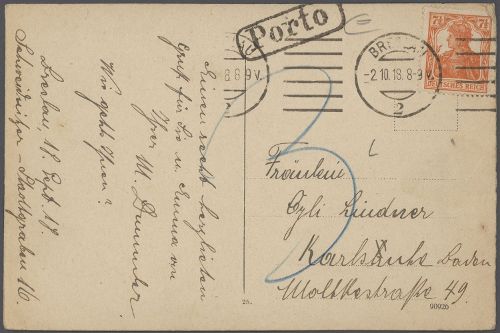 Porto
8.8-9V.
BRESLAU
-2.10.18.8-9V.
2
7½ 7½
DEUTSCHES REICH
3
Einen recht herzlichen
Gruß für Sie u. Emma von
Ihrer M. Dammler.
Wie geht Ihnen?
Breslau, 18. Sept. 18.
Schweidnitzer-Stadtgraben 16
Fräulein
Lindner
Karlsruhe Baden
Moltkestraße 49.
90920